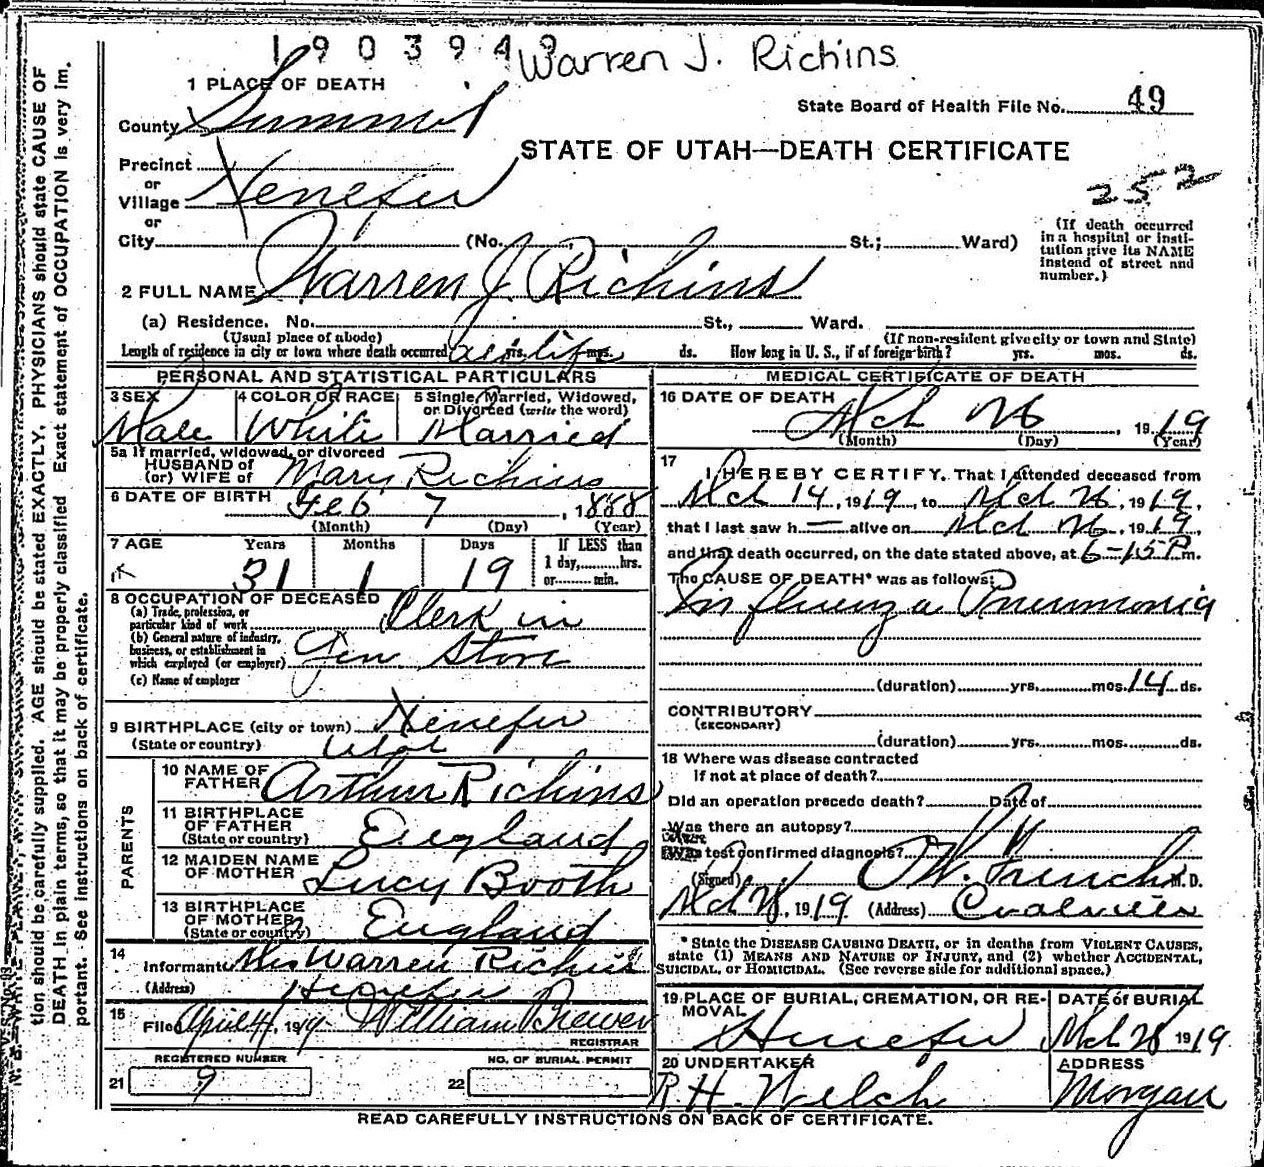 1903949 Warren J. Richins
1 PLACE OF DEATH
State Board of Health File No. 49
County Summit
STATE OF UTAH—DEATH CERTIFICATE
Precinct
or
Village Henefer
252
or
City (No. St.; Ward)
(If death occurred
in a hospital or insti-
tution give its NAME
instead of street and
number.)
2 FULL NAME Warren J. Richins
(a) Residence. No. St., Ward.
(Usual place of abode) (If non-resident give city or town and State)
Length of residence in city or town where death occurred life yrs. mos. ds. How long in U. S., if of foreign birth? yrs. mos. ds.
PERSONAL AND STATISTICAL PARTICULARS
3 SEX Male
4 COLOR OR RACE White
5 Single, Married, Widowed,
or Divorced (write the word)
Married
5a If married, widowed, or divorced
HUSBAND of
(or) WIFE of Mary Richins
6 DATE OF BIRTH Feb 7, 1888
(Month) (Day) (Year)
7 AGE Years Months Days If LESS than
1 day, hrs.
or min.
31 1 19
8 OCCUPATION OF DECEASED
(a) Trade, profession, or
particular kind of work Clerk in
(b) General nature of industry,
business, or establishment in
which employed (or employer) Gen Store
(c) Name of employer
9 BIRTHPLACE (city or town) Henefer
(State or country) Utah
PARENTS
10 NAME OF
FATHER Arthur Richins
11 BIRTHPLACE
OF FATHER
(State or country) England
12 MAIDEN NAME
OF MOTHER Lucy Booth
13 BIRTHPLACE
OF MOTHER
(State or country) England
14
Informant Mrs Warren Richins
(Address) Henefer
15
Filed April 4, 1919 William Brewer
REGISTRAR
REGISTERED NUMBER NO. OF BURIAL PERMIT
21 9 22
MEDICAL CERTIFICATE OF DEATH
16 DATE OF DEATH
Mch 26, 1919
(Month) (Day) (Year)
17
I HEREBY CERTIFY, That I attended deceased from
Mch 14, 1919, to Mch 26, 1919,
that I last saw h— alive on Mch 26, 1919,
and that death occurred, on the date stated above, at 6-15 P.m.
The CAUSE OF DEATH* was as follows:
Influenza Pneumonia
(duration) yrs. mos. 14 ds.
CONTRIBUTORY
(SECONDARY)
(duration) yrs. mos. ds.
18 Where was disease contracted
if not at place of death?
Did an operation precede death? Date of
Was there an autopsy?
test confirmed diagnosis?
(Signed) M. D.
Mch 28, 1919 (Address) Coalville
*State the DISEASE CAUSING DEATH, or in deaths from VIOLENT CAUSES,
state (1) MEANS AND NATURE OF INJURY, and (2) whether ACCIDENTAL,
SUICIDAL, or HOMICIDAL. (See reverse side for additional space.)
19 PLACE OF BURIAL, CREMATION, OR RE-
MOVAL
Henefer
DATE of BURIAL
Mch 28 1919
20 UNDERTAKER
R. H. Welch
ADDRESS
Morgan
READ CAREFULLY INSTRUCTIONS ON BACK OF CERTIFICATE.
tion should be carefully supplied. AGE should be stated EXACTLY. PHYSICIANS should state CAUSE OF
DEATH in plain terms, so that it may be properly classified Exact statement of OCCUPATION is very im.
portant. See instructions on back of certificate.